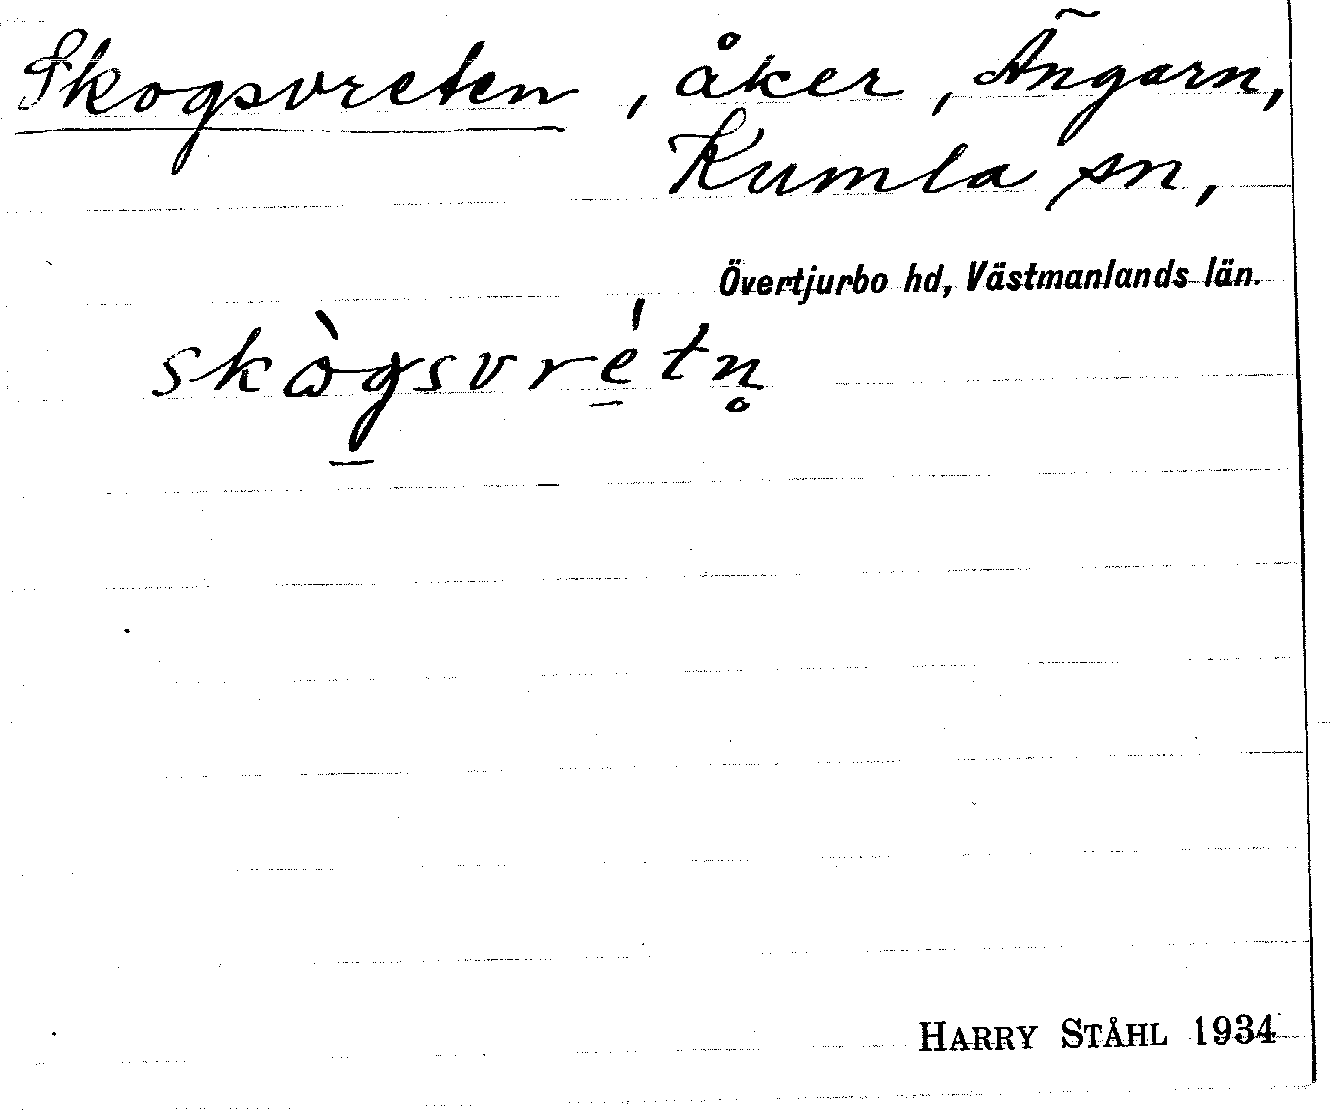 Skogsvreten, åker, Ängarn,
Kumla sn,
Övertjurbo hd, Västmanlands län.
skò̀g̱svré̱tn̥
HARRY STÅHL 1934